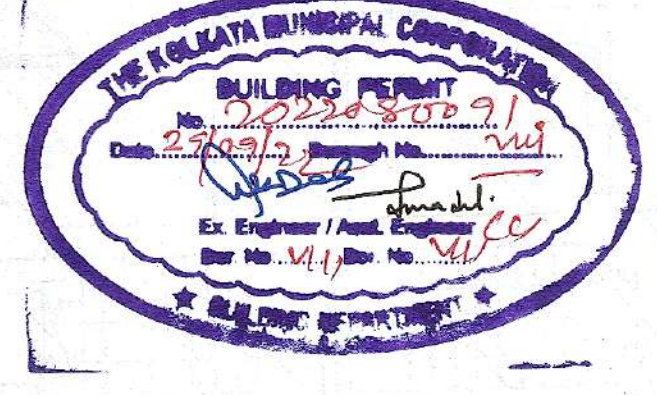 THE KOLKATA MUNICIPAL CORPORATION
BUILDING PERMIT
No. 2022080091
Date 29/09/22 Borough No. VIII
Ex. Engineer / Asst. Engineer
Bor No. VII, Bor No. VII
★ BUILDING DEPARTMENT ★